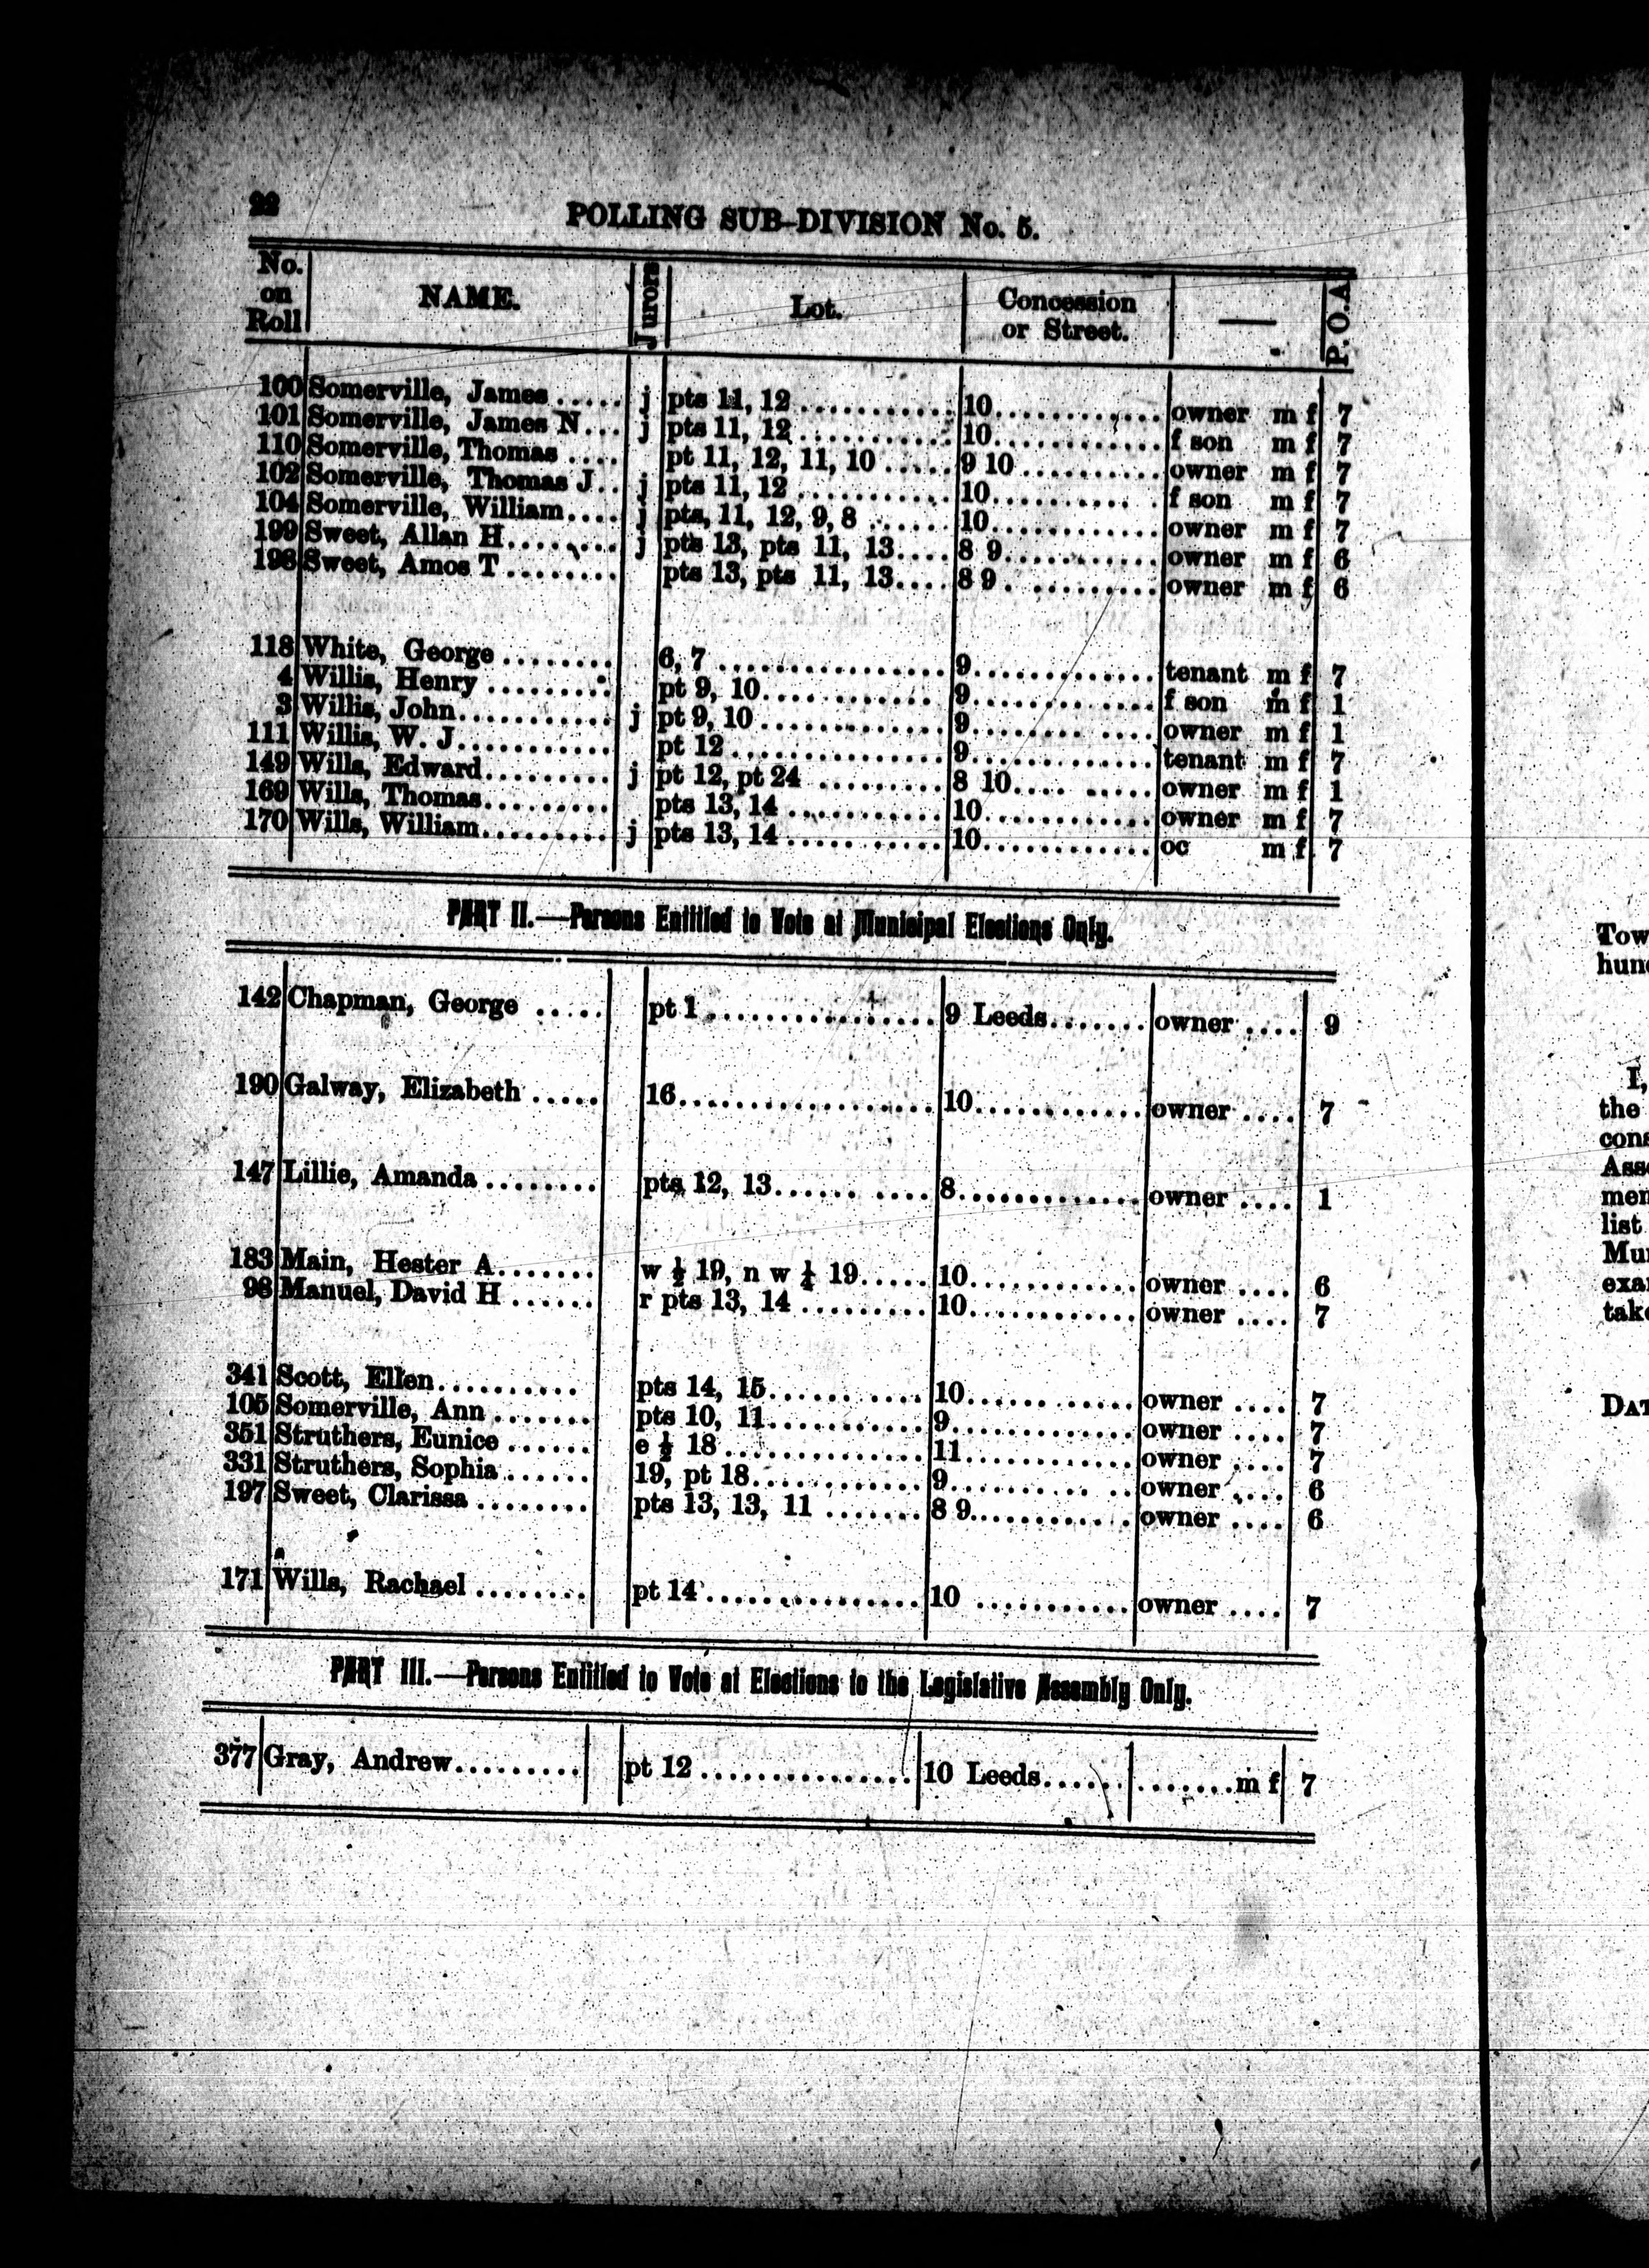 22
POLLING SUB-DIVISION No. 5.
No. on Roll NAME. Jurors Lot. Concession or Street. — P. O. A
100 Somerville, James ..... j pts 11, 12 ........... 10............ owner m f 7
101 Somerville, James N... j pts 11, 12............ 10............ f son m f 7
110 Somerville, Thomas .... pt 11, 12, 11, 10 ..... 9 10.......... owner m f 7
102 Somerville, Thomas J.. j pts 11, 12........... 10.......... . f son m f 7
104 Somerville, William.... j pts, 11, 12, 9, 8 ...... 10............ owner m f 7
199 Sweet, Allan H........ j pts 13, pts 11, 13.... 8 9........... owner m f 6
198 Sweet, Amos T ........ pts 13, pts 11, 13.... 8 9. ......... owner m f 6
118 White, George ........ 6, 7 ............... 9............. tenant m f 7
4 Willis, Henry ......... pt 9, 10............ 9........ .... f son m f 1
3 Willis, John........... j pt 9, 10 ............ 9........ .... owner m f 1
111 Willis, W. J........... pt 12............... 9............. tenant m f 7
149 Wills, Edward......... j pt 12, pt 24 ......... 8 10.... ..... owner m f 1
169 Wills, Thomas......... pts 13, 14 ........... 10............ owner m f 7
170 Wills, William......... j pts 13, 14........... 10............ oc m f 7
PART II.—Persons Entitled to Vote at Municipal Elections Only.
142 Chapman, George ..... pt 1 ................ 9 Leeds....... owner .... 9
190 Galway, Elizabeth ..... 16.................. 10............ owner .... 7
147 Lillie, Amanda ........ pts 12, 13...... .... 8............. owner .... 1
183 Main, Hester A....... w ½ 19, n w ¼ 19..... 10............ owner .... 6
98 Manuel, David H ...... r pts 13, 14 .......... 10............ owner .... 7
341 Scott, Ellen.......... pts 14, 15........... 10............ owner .... 7
105 Somerville, Ann ....... pts 10, 11........... 9............. owner .... 7
351 Struthers, Eunice ...... e ½ 18.............. 11............ owner .... 7
331 Struthers, Sophia ...... 19, pt 18............ 9.......... .. owner .... 6
197 Sweet, Clarissa ........ pts 13, 13, 11 ....... 8 9........... owner .... 6
171 Wills, Rachael ........ pt 14............... 10 ........... owner .... 7
PART III.—Persons Entitled to Vote at Elections to the Legislative Assembly Only.
377 Gray, Andrew......... pt 12 ............... 10 Leeds...... .......m f 7
Tow
hund
I,
the
cons
Asse
men
list
Mun
exa
take
DAT